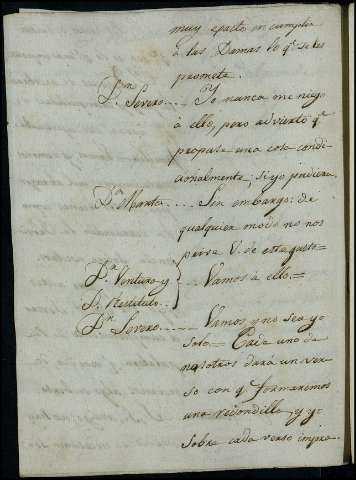 muy exacto en cumplir
à las Damas lo q.e se les
promete.
D.n Severo.... Yo nunca me niego
à ello, pero advierto q.e
propuse una cosa condi-
cionalmente, si yo pudiera.
D.a Marta.... Sin embargo: de
qualquier modo no nos
prive V. de este gusto=
D.n Ventura y
D.n Restituto } Vamos à ello.=
D.n Severo..... Vamos y no sea yo
solo= Cada uno de
nosotros dará un ver-
so con q.e formaremos
una redondilla, y yo
sobre cada verso impro-